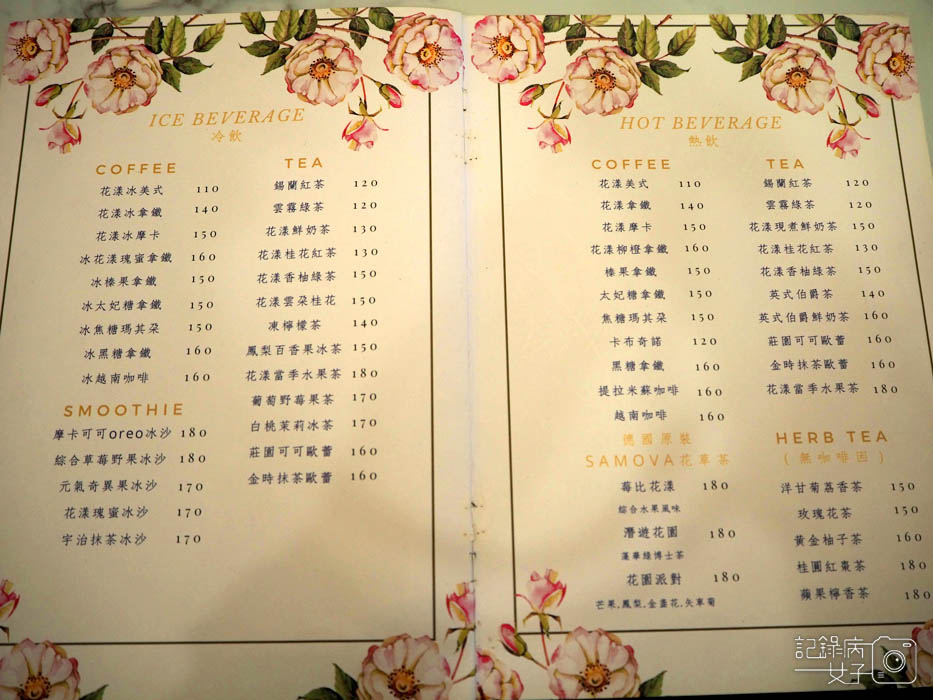 ICE BEVERAGE
冷飲
COFFEE
花漾冰美式 110
花漾冰拿鐵 140
花漾冰摩卡 150
冰花漾瑰蜜拿鐵 160
冰榛果拿鐵 150
冰太妃糖拿鐵 150
冰焦糖瑪其朵 150
冰黑糖拿鐵 160
冰越南咖啡 160
SMOOTHIE
摩卡可可oreo冰沙 180
綜合草莓野果冰沙 180
元氣奇異果冰沙 170
花漾瑰蜜冰沙 170
宇治抹茶冰沙 170
TEA
錫蘭紅茶 120
雲霧綠茶 120
花漾鮮奶茶 130
花漾桂花紅茶 130
花漾香柚綠茶 150
花漾雲朵桂花 150
凍檸檬茶 140
鳳梨百香果冰茶 150
花漾當季水果茶 180
葡萄野莓果茶 170
白桃茉莉冰茶 170
莊園可可歐蕾 160
金時抹茶歐蕾 160
HOT BEVERAGE
熱飲
COFFEE
花漾美式 110
花漾拿鐵 140
花漾摩卡 150
花漾柳橙拿鐵 160
榛果拿鐵 150
太妃糖拿鐵 150
焦糖瑪其朵 150
卡布奇諾 120
黑糖拿鐵 160
提拉米蘇咖啡 160
越南咖啡 160
德國原裝
SAMOVA花草茶
莓比花漾 180
綜合水果風味
潛遊花園 180
蓬華綠博士茶
花園派對 180
芒果,鳳梨,金盞花,矢車菊
TEA
錫蘭紅茶 120
雲霧綠茶 120
花漾現煮鮮奶茶 150
花漾桂花紅茶 130
花漾香柚綠茶 150
英式伯爵茶 140
英式伯爵鮮奶茶 160
莊園可可歐蕾 160
金時抹茶歐蕾 160
花漾當季水果茶 180
HERB TEA
(無咖啡因)
洋甘菊荔香茶 150
玫瑰花茶 150
黃金柚子茶 160
桂圓紅棗茶 180
蘋果檸香茶 180
記錄病
女子